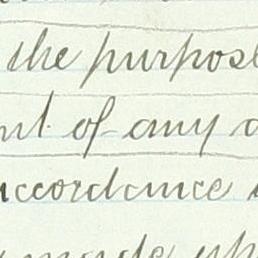 the purpose
of any
accordance
made